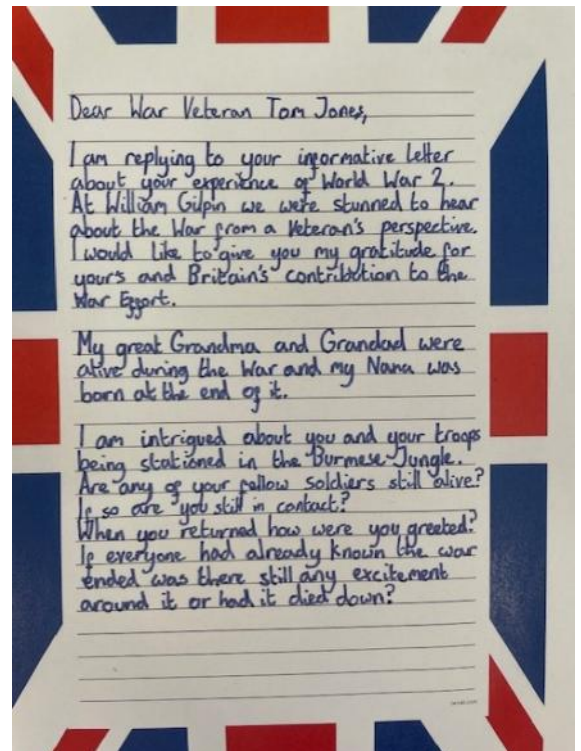 Dear War Veteran Tom Jones,
I am replying to your informative letter
about your experience of World War 2.
At William Gilpin we were stunned to hear
about the War from a Veteran's perspective.
I would like to give you my gratitude for
your's and Britain's contribution to the
War Effort.
My great Grandma and Grandad were
alive during the War and my Nana was
born at the end of it.
I am intrigued about you and your troops
being stationed in the Burmese Jungle.
Are any of your fellow soldiers still alive?
If so are you still in contact?
When you returned how were you greeted?
If everyone had already known the war
ended was there still any excitement
around it or had it died down?